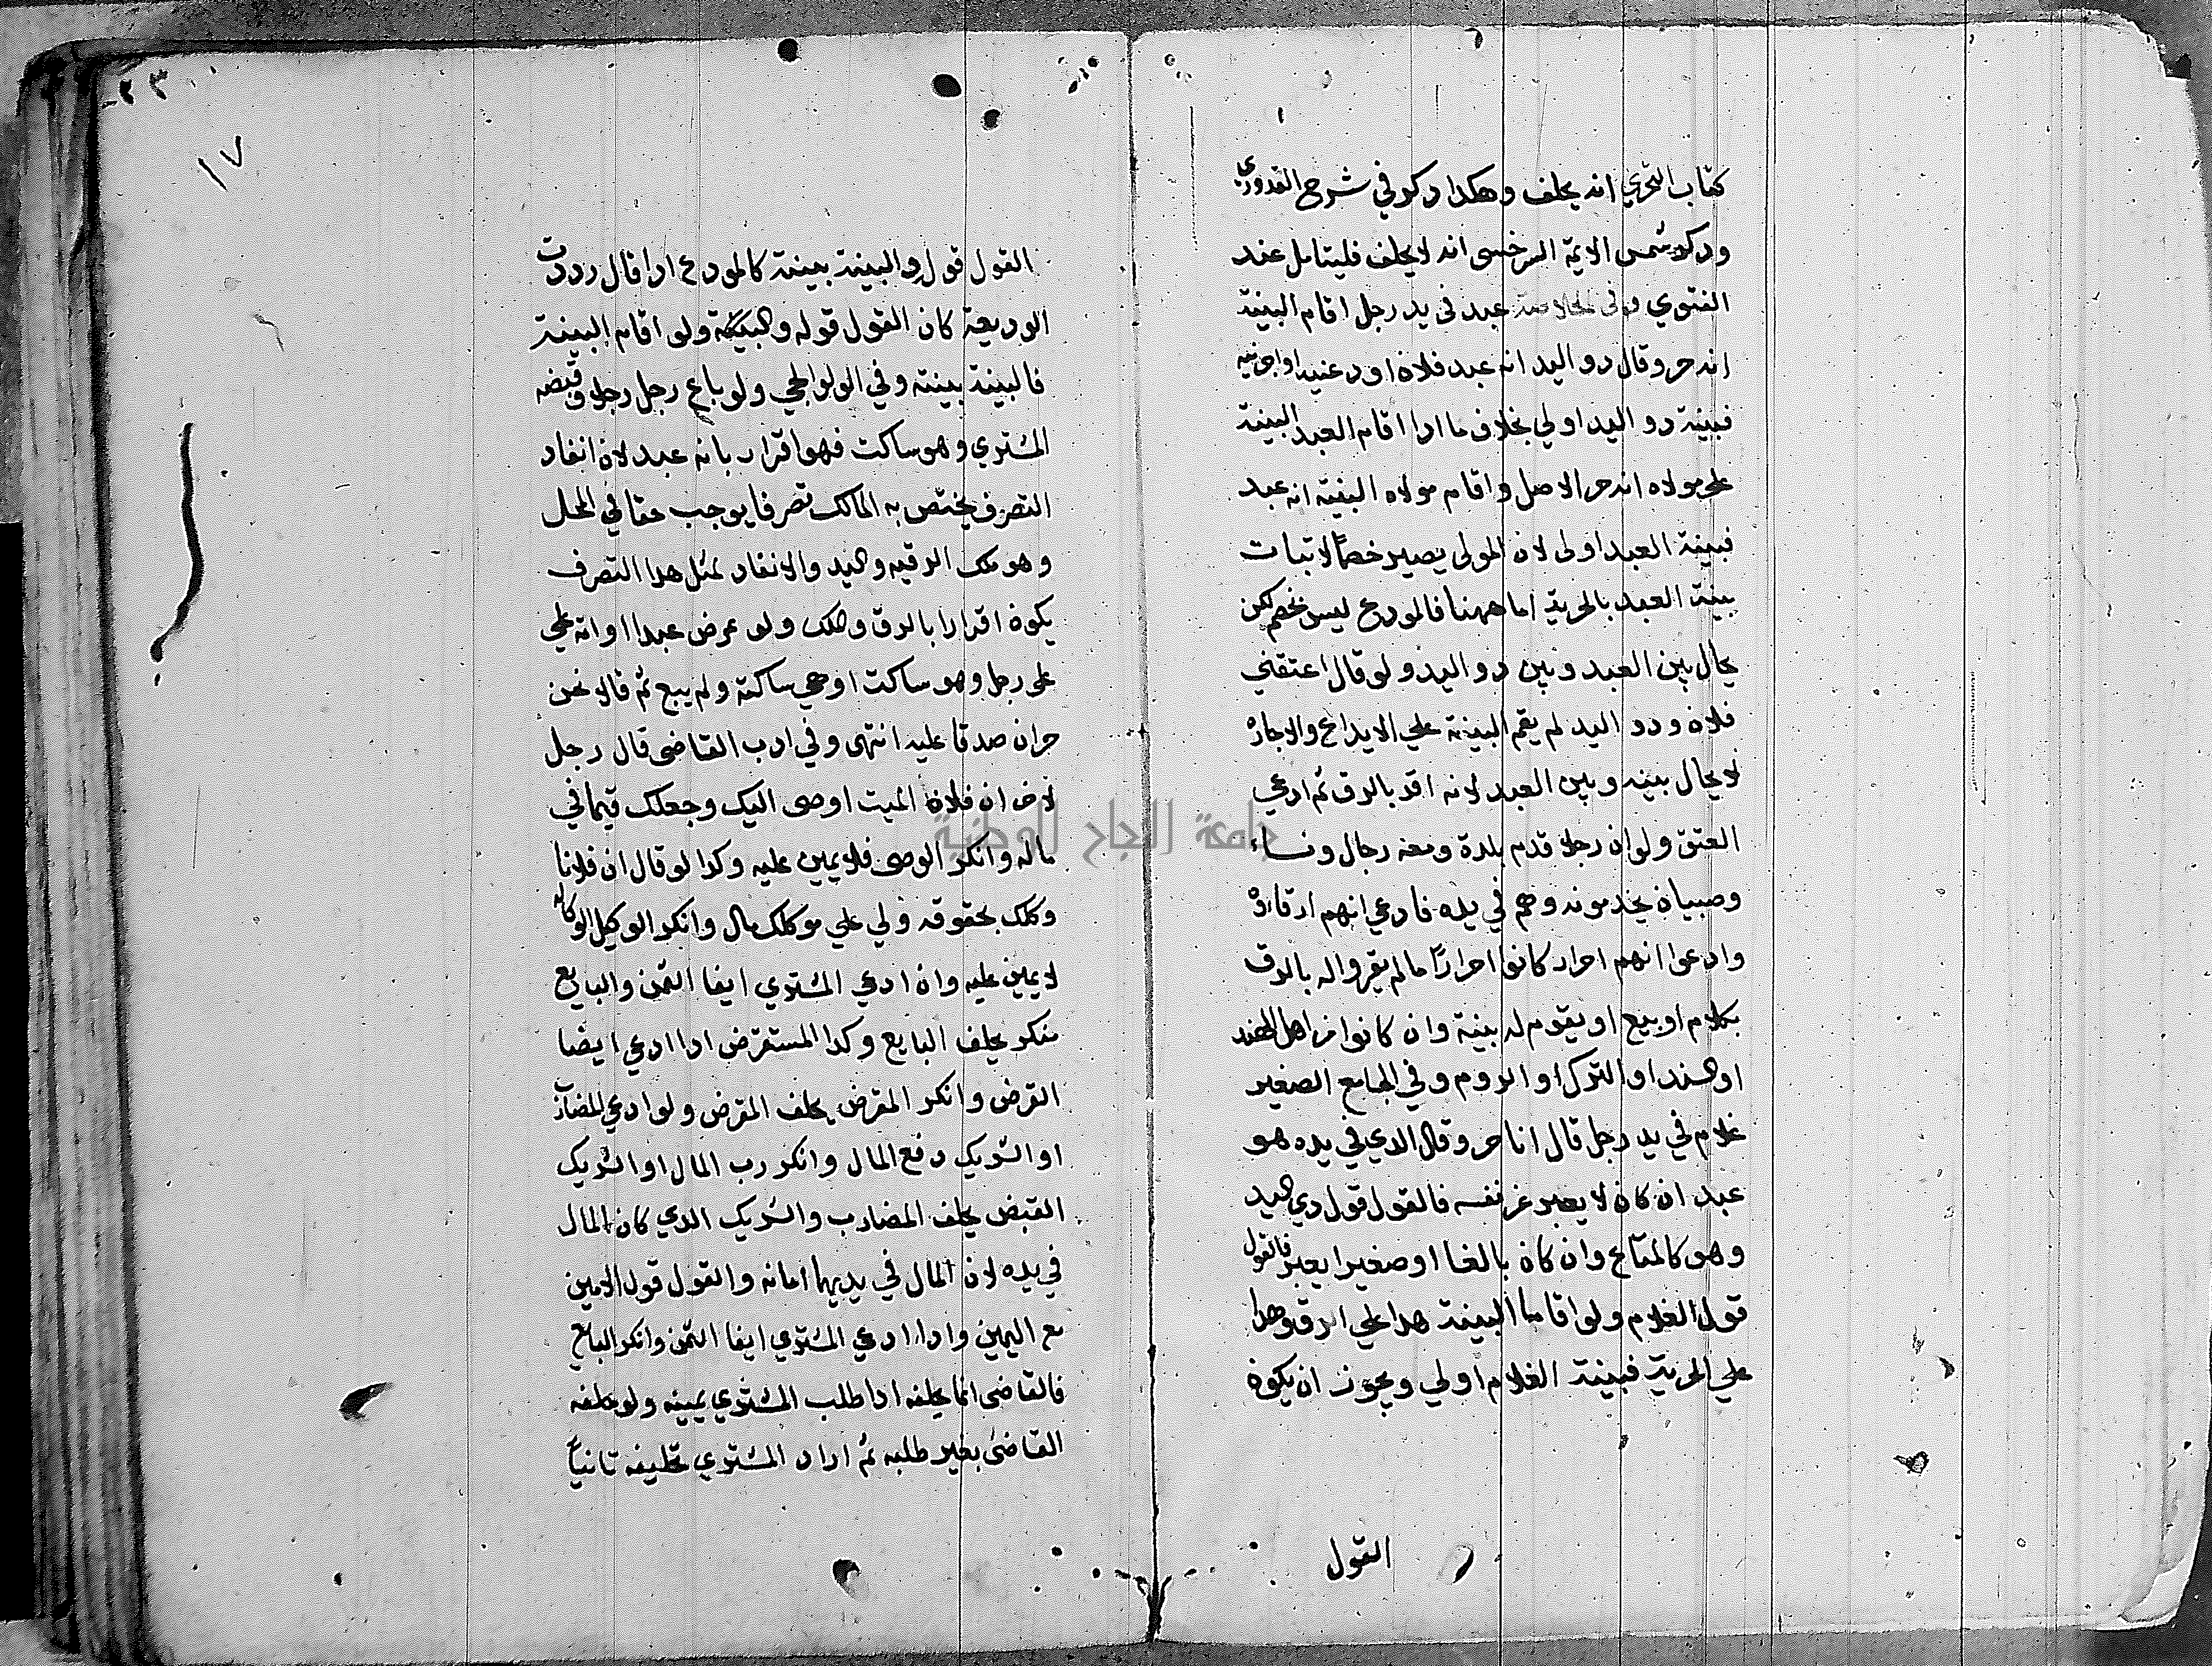 كتاب التحري انه يحلف وهكدا دكر في شرح القدوري
ودكر شمس الايمة السرخسي انه لا يحلف فليتامل عند
الفتوي وفي الخلاصة عبد في يد رجل اقام البينة
انه حر وقال دو اليد انه عبد فلان اودعنيه او اجرنيه
فبينة دو اليد اولي بخلاف ما ادا اقام العبد البينة
علي مولاه انه حر الاصل واقام مولاه البينة انه عبد
فبينة العبد اولى لان المولى يصير خصما لاتبات
بينة العبد بالحرية اما ههنا فالمودع ليس بخصم لكن
يحال بين العبد وبين دو اليد ولو قال اعتقني
فلان ودو اليد لم يقم البينة علي الايداع والاجاره
لا يحال بينه وبين العبد لانه اقر بالرق ثم ادعي
العتق ولو ان رجلا قدم بلدة ومعه رجال ونساء
وصبيان يخدمونه وهم في يده فادعي انهم ارقاؤه
وادعوا انهم احرار كانوا احرارًا ما لم يقروا له بالرق
بكلام او بيع او يقوم له بينة وان كانوا من اهل الهند
او السند او الترك او الروم وفي الجامع الصغير
غلام في يد رجل قال انا حر وقال الدي في يده هو
عبد ان كان لا يعبر عن نفسه فالقول قول دي اليد
وهو كالمتاع وان كان بالغا او صغيرا يعبر فالقول
قول الغلام ولو اقاما البينة هدا علي الرق وهدا
علي الحرية فبينة الغلام اولي ويجوز ان يكون
القول
٢٣
١٧
القول قول والبينة بينة كالمودع ادا قال رددت
الوديعة كان القول قوله والبينة ولو اقام البينة
فالبينة بينته وفي الولوالجي ولو باع رجل رجلا وقبضه
المشتري وهو ساكت فهو اقرار بانه عبد لان انقاد
التصرف يختص به المالك تصرفا يوجب حقا في المحل
وهو ملك الرقبه واليد والانقاد لمثل هدا التصرف
يكون اقرارا بالرق والملك ولو عرض عبدا او امة علي
علي رجل وهو ساكت او هي ساكتة ولم يبع ثم قالا نحن
حران صدقا عليه انتهى وفي ادب القاضي قال رجل
لاخر ان فلان الميت اوصى اليك وجعلك قيما في
ماله وانكر الوصي فلا يمين عليه وكدا لو قال ان فلانا
وكلك بحقوقه ولي علي موكلك مال وانكر الوكيل الوكاله
لا يمين عليه وان ادعي المشتري ايفا الثمن والبايع
منكر يحلف البايع وكدا المستقرض ادا ادعي ايضا
القرض وانكر المقرض يحلف المقرض ولو ادعي المضارب
او الشريك دفع المال وانكر رب المال او الشريك
القبض يحلف المضارب والشريك الدي كان المال
في يده لان المال في يديهما امانه والقول قول الامين
مع اليمين وادا ادعي المشتري ايفا الثمن وانكر البايع
فالقاضي انما يحلفه ادا طلب المشتري يمينه ولو حلفه
القاضى بغير طلبه ثم اراد المشتري تحليفه تانيا
جامعة النجاح الوطنية